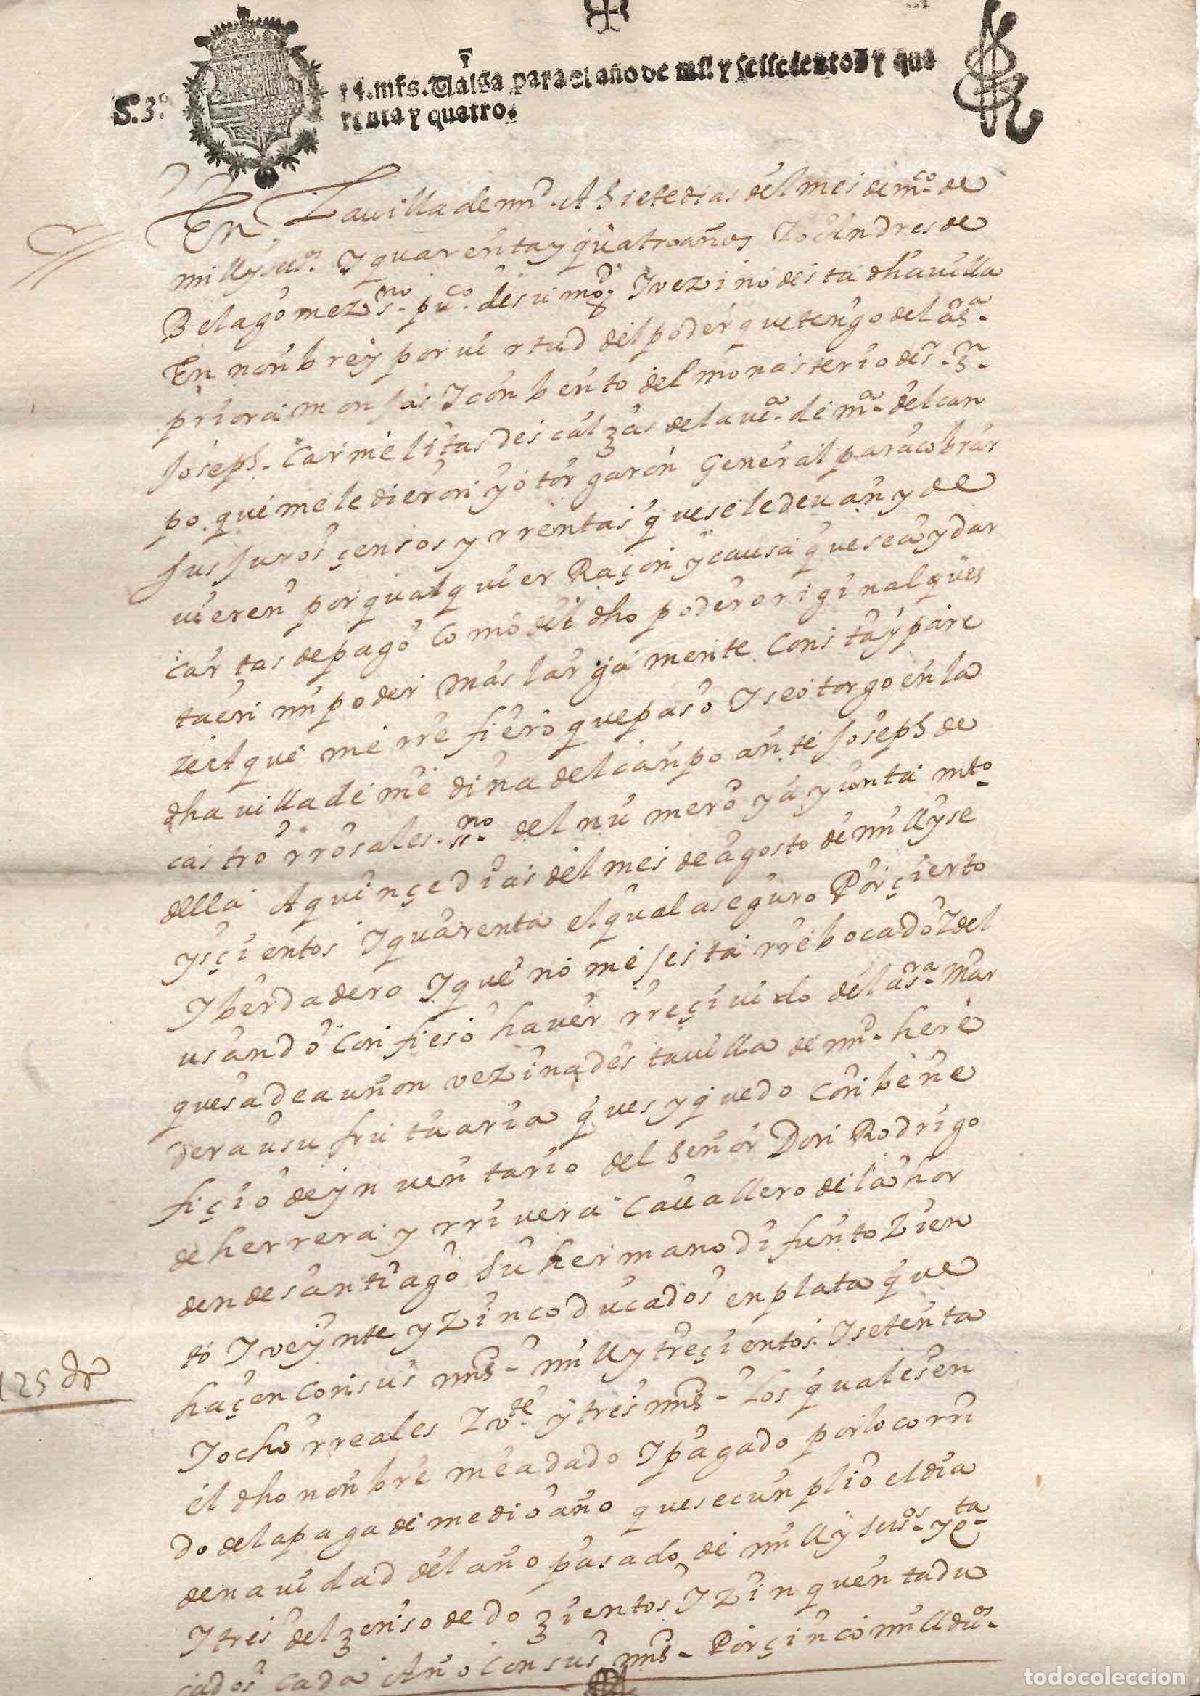 S.3º
Valga para el año de mil y seiscientos y qua
renta y quatro.
En La villa de md. A siete dias del mes de mço de
mill y seisº. Y quarenta y quatro años Yo Andres de
Bela gomez sno. puco. de su mgd. Y vezino desta dha villa
En nonbre y por virtud del poder que tengo de la sa.
priora monjas Y conbento del monasterio de sr. sn.
Joseph. Carmelitas descalzas de la va. de ma. del can
po. que me le dieron y otorgaron General para cobrar
sus Juros çensos y rrentas que se le devan y de
vieren por qualquier Raçon y causa que sea y dar
cartas de pago Como del dho poder original ques
ta en mi poder mas largamente Consta y pare
ze A que me rrefiero que paso Y se otorgo en la
dha villa de medina del canpo ante Joseph de
castro rrosales. sno. del numero y ayuntamto.
della A quinçe dias del mes de agosto de mill y se
ysçientos Y quarenta el qual aseguro Por çierto
Y berdadero Y que no me es ta rrebocado Y del
usando Confieso haver rreçivido de la sra. Mar
quesa de auñon vezina desta villa de md. here
dera usufrutuaria ques y quedo Con bene
fiçio de ynventario del Señor Don Rodrigo
de herrera y rrivera Cavallero de la hor
den de santiago Su hermano difunto Zien
to Y veynte y zinco ducados en plata que
haçen Con sus mrs. mill y treçientos Y setenta
125 ds
Y ocho rreales Y vte. y tres mrs. Los quales en
el dho nonbre me a dado Y pagado por lo corri
do de la paga de medio año que se cunplio el dia
de navidad del año pasado de mill y seisos. y qta.
Y tres del zenso de dozientos Y zinquenta du
cados Cada Año Con sus mrs. Por çinco mill dus.
todocoleccion